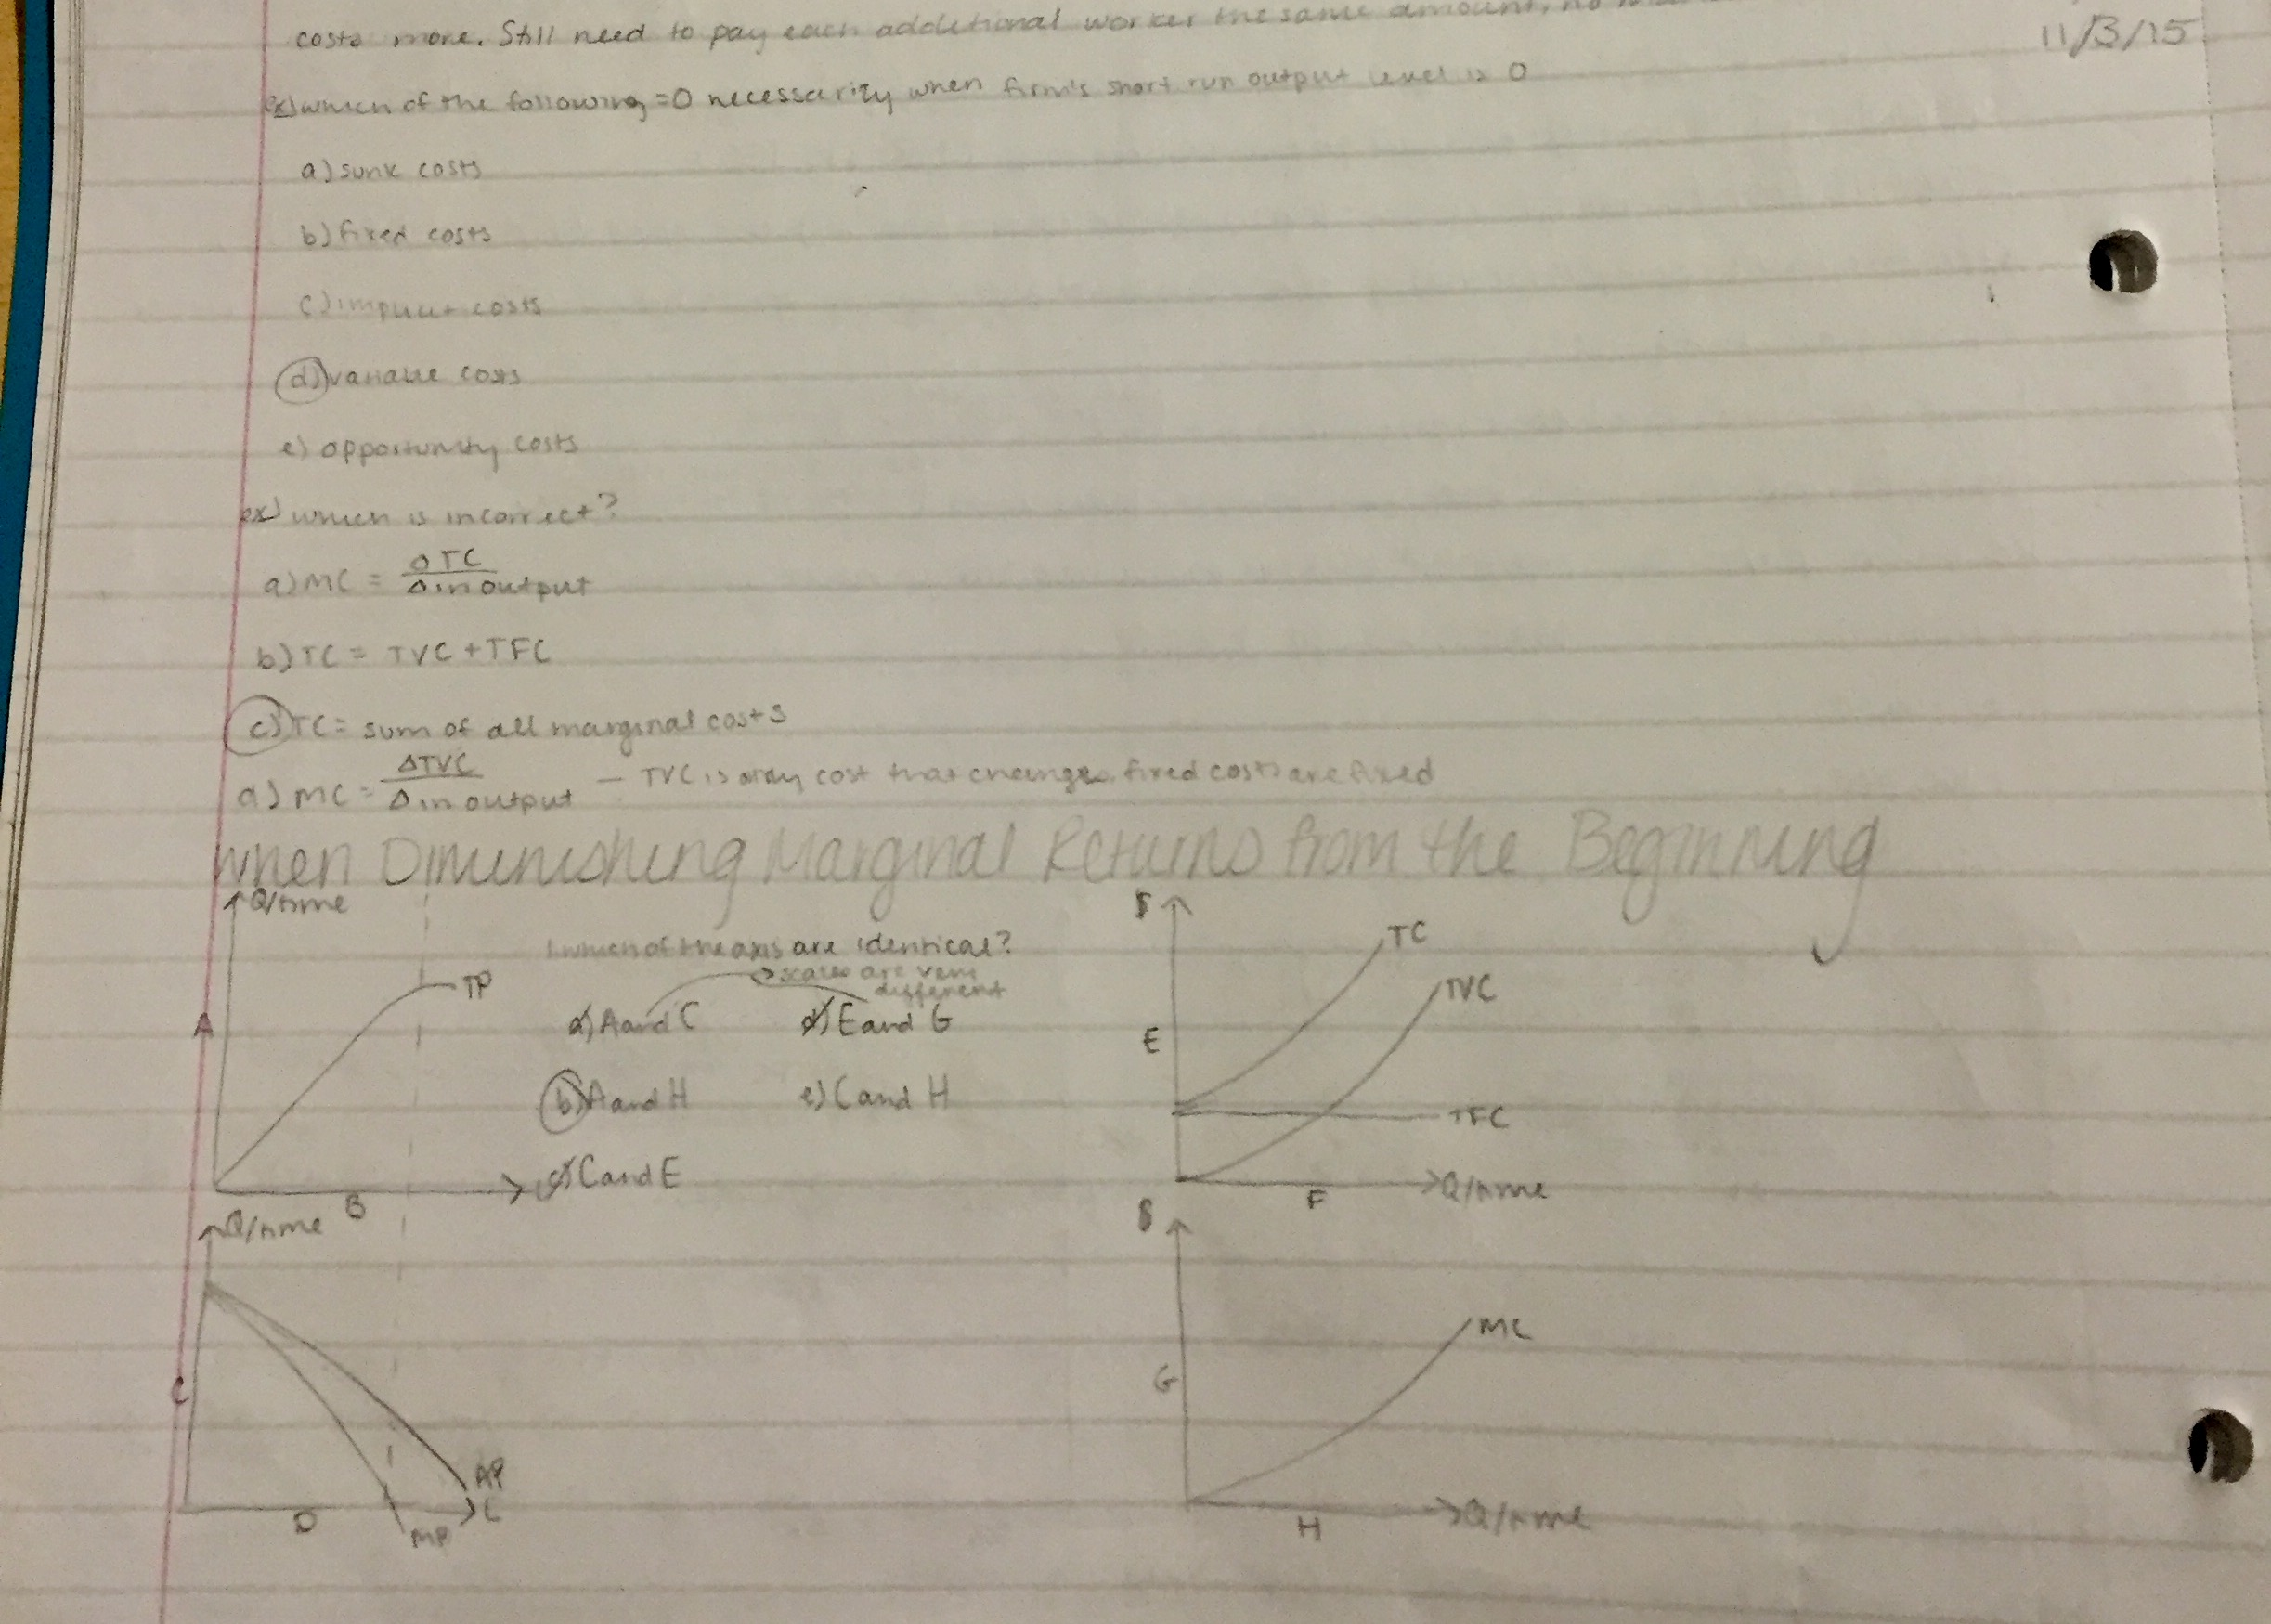 costs more. Still need to pay each additional worker the same amount, no
11/3/15
ex) which of the following =0 necessarily when firm's short run output level is 0
a) sunk costs
b) fixed costs
c) implicit costs
d) variable costs
e) opportunity costs
ex) which is incorrect?
a) MC = ΔTC / Δ in output
b) TC = TVC + TFC
c) TC = sum of all marginal costs
d) MC = ΔTVC / Δ in output — TVC is only cost that changes. fixed costs are fixed
When Diminishing Marginal Returns from the Beginning
Q/time
TP
A
B
which of the axis are identical?
scales are very
different
a) A and C
d) E and G
b) A and H
e) C and H
c) C and E
$
TC
TVC
E
TFC
F
Q/time
Q/time
C
AP
L
D
MP
$
MC
G
H
Q/time